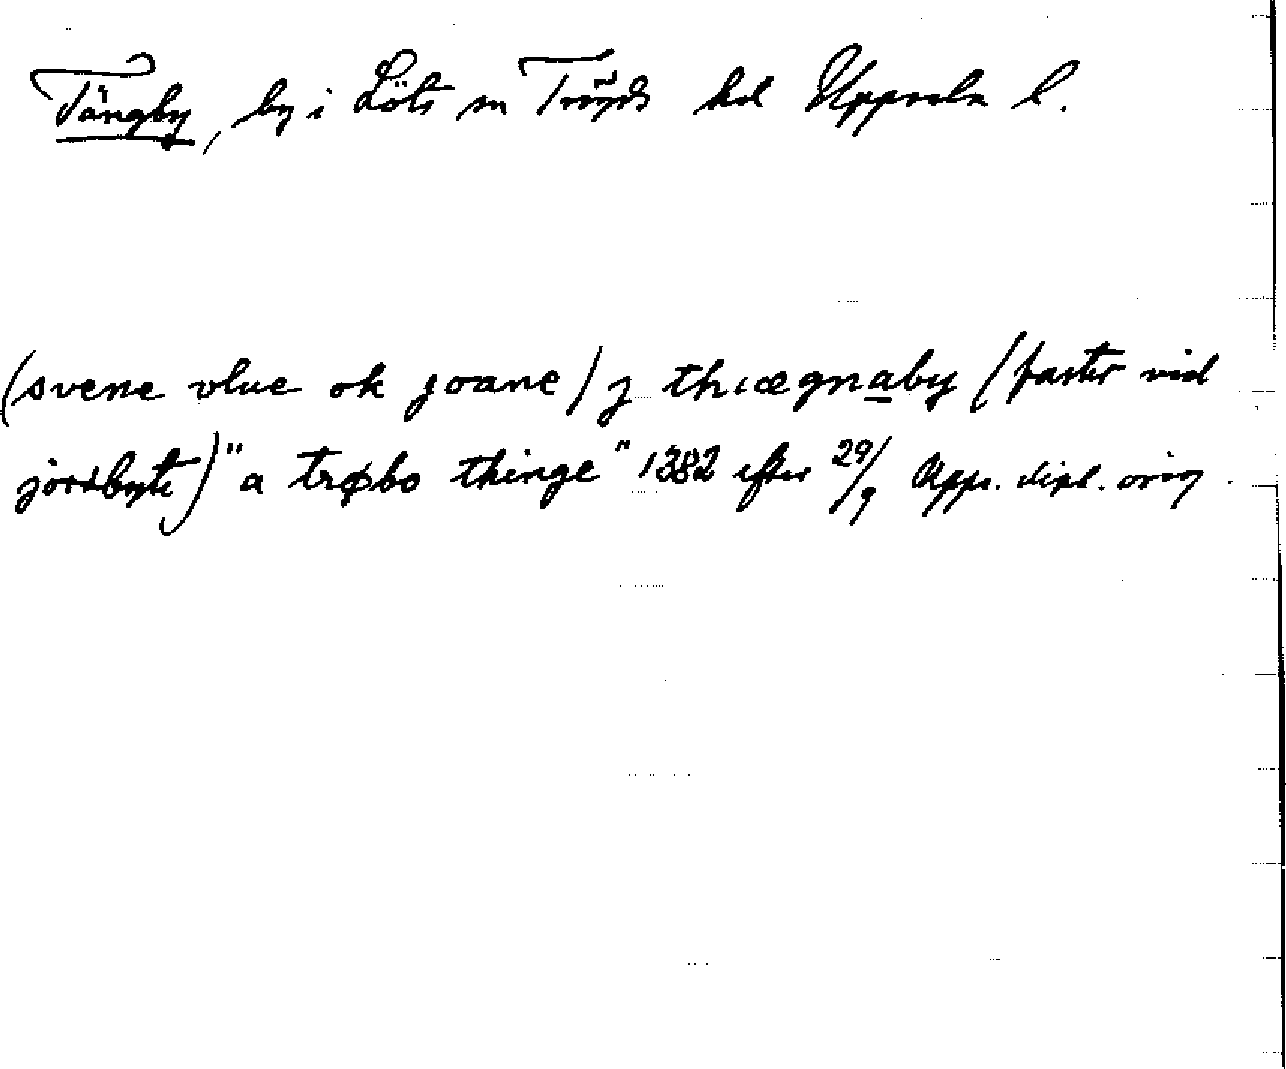 Tängby, by i Löts sn Trögds hd Uppsala l.
(svene olue ok joane) j thiægnaby (faster vid
jordbyte) "a trøbo thinge" 1382 efter 29/9 Upps. dipl. orig.